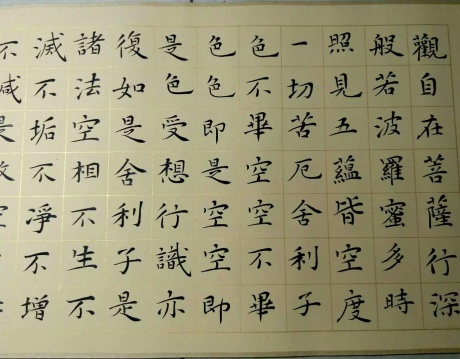 觀自在菩薩行深
般若波羅蜜多時
照見五蘊皆空度
一切苦厄舍利子
色不異空空不異
色色即是空空即
是色受想行識亦
復如是舍利子是
諸法空相不生不
滅不垢不淨不增
不減是故空